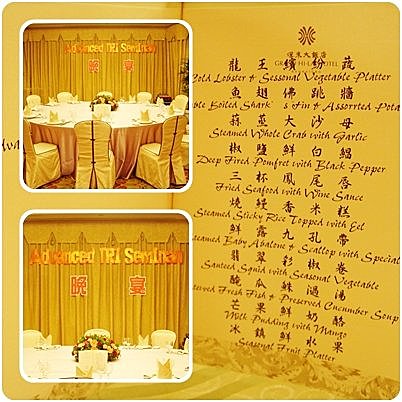 Advanced TRI Seminar
晚宴
Advanced TRI Seminar
晚宴
環東大飯店
GRAND HI-LAI HOTEL
龍王繽紛蔬
Cold Lobster & Sessonal Vegetable Platter
魚翅佛跳牆
Boiled Shark's Fin & Assorrted
蒜蓉大沙母
Steamed Whole Crab with Garlic
椒鹽鮮白鯧
Deep Fired Pomfret with Black Pepper
三杯鳳尾唇
Fried Seafood with Wine Sance
燒鰻香米糕
Steamed Sticky Rice Topped with Eel
鮮露九孔帶
Baby Abalone & Scallop with Special
翡翠彩椒卷
Santeed Squid with Seasonal Vegetable
醃瓜鮢過湯
Fresh Fish & Preserved Cucumber Soup
芒果鮮奶酪
Milk Pudding with Mango
冰鎮鮮水果
Seasonal Fruit Platter